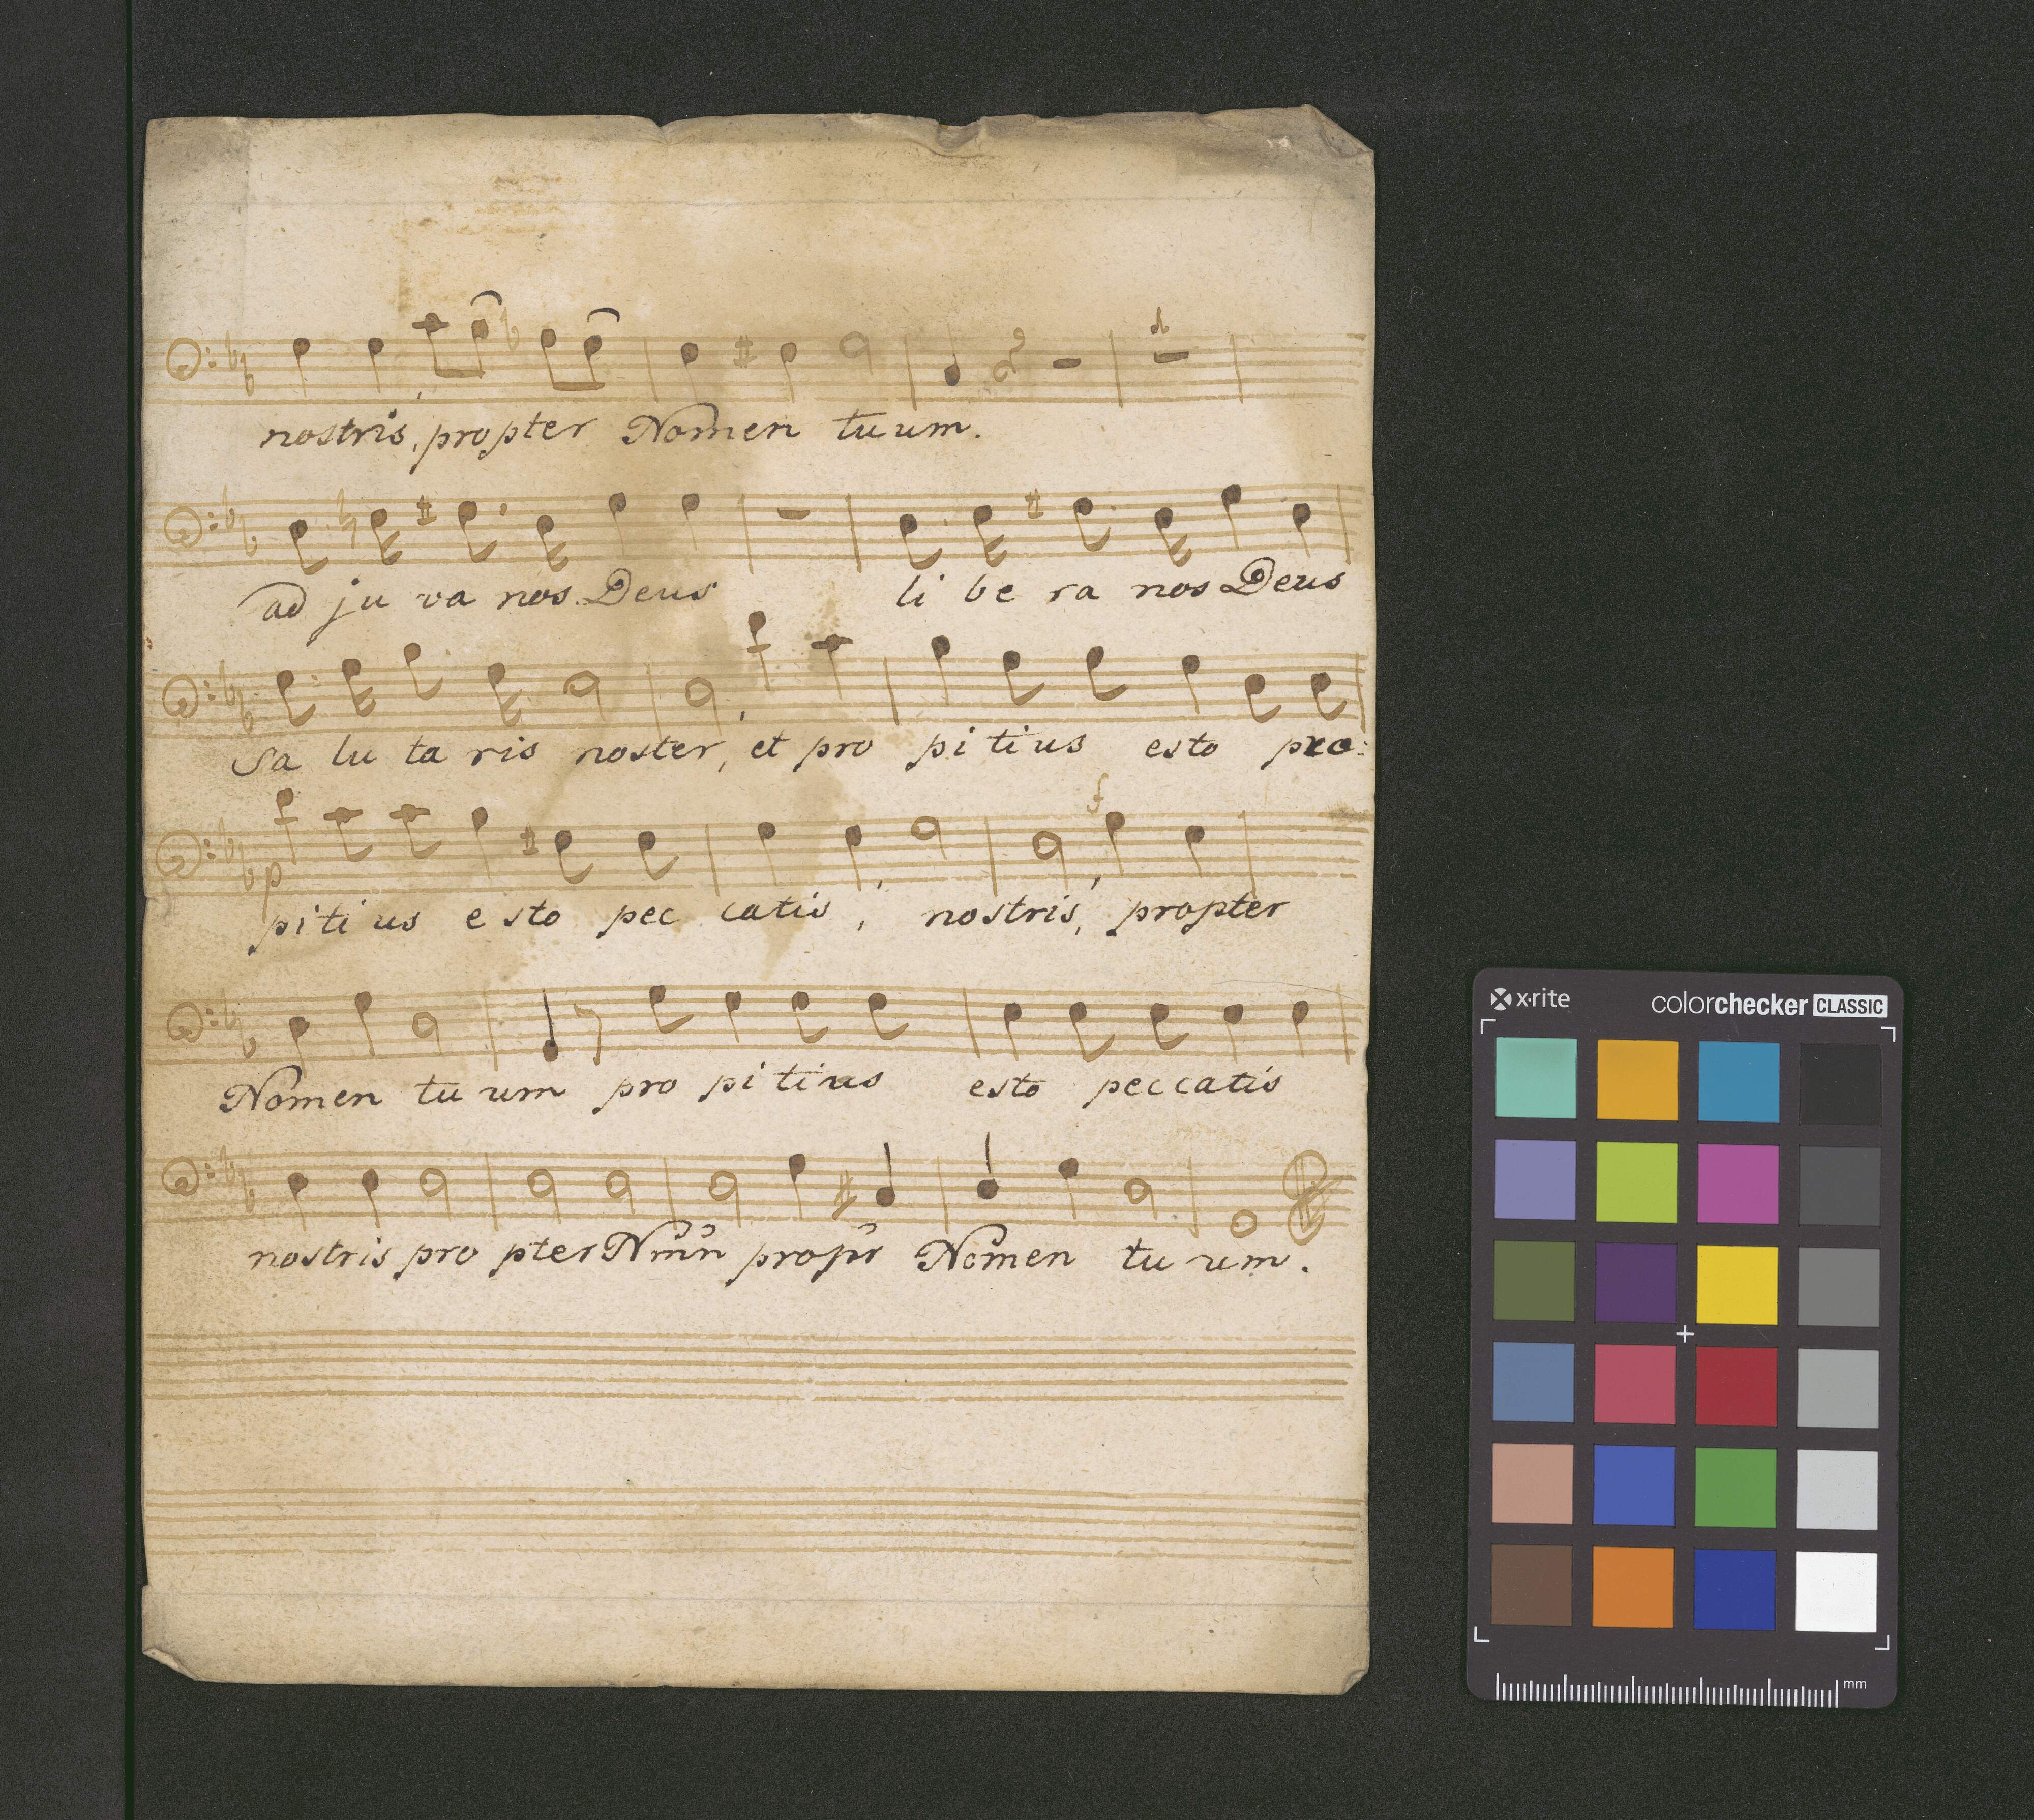 nostris, propter Nomen tuum.
ad ju va nos Deus li be ra nos Deus
Sa lu ta ris noster, et pro pi tius esto pro:
f
p
pi ti us e sto pec catis, nostris, propter
Nomen tu um pro pi tius esto peccatis
nostris pro pter Nmn propr Nomen tu um.
x·rite colorchecker CLASSIC
mm